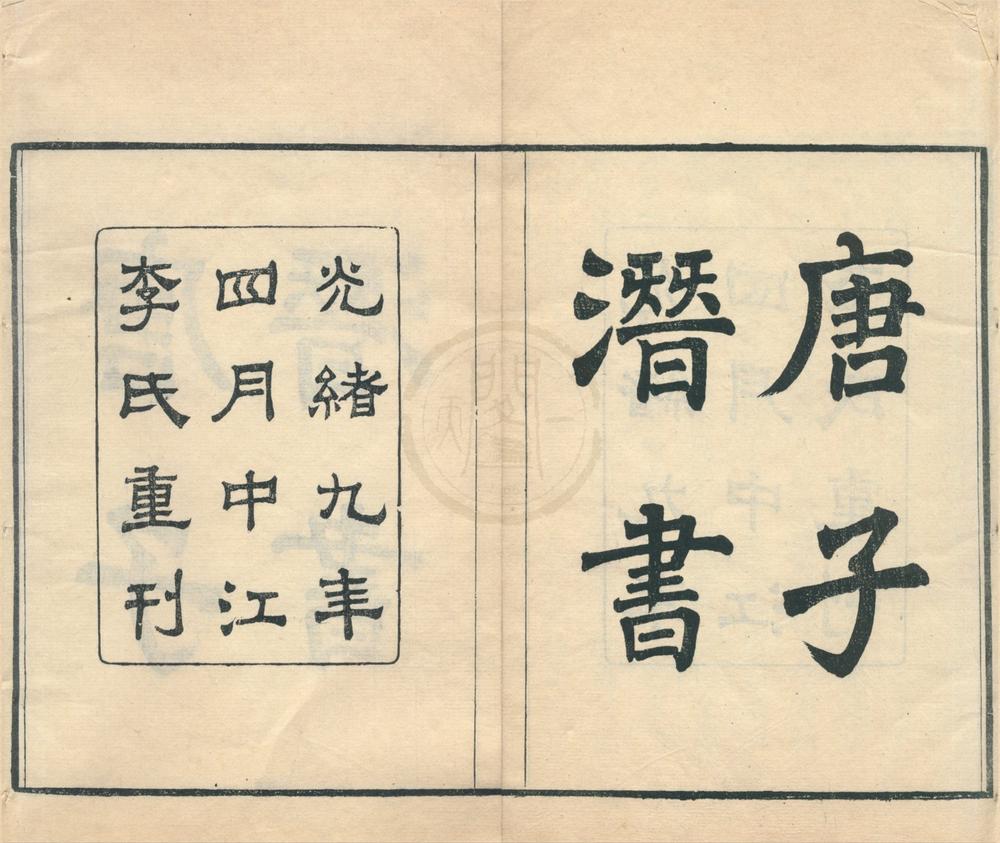 唐子
潛書
光緒九年
四月中江
李氏重刊